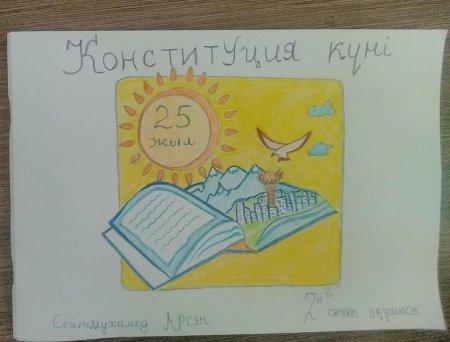 Конституция күні
25
жыл
Сейтмухамед Арсен
2 "г" сынып оқушысы